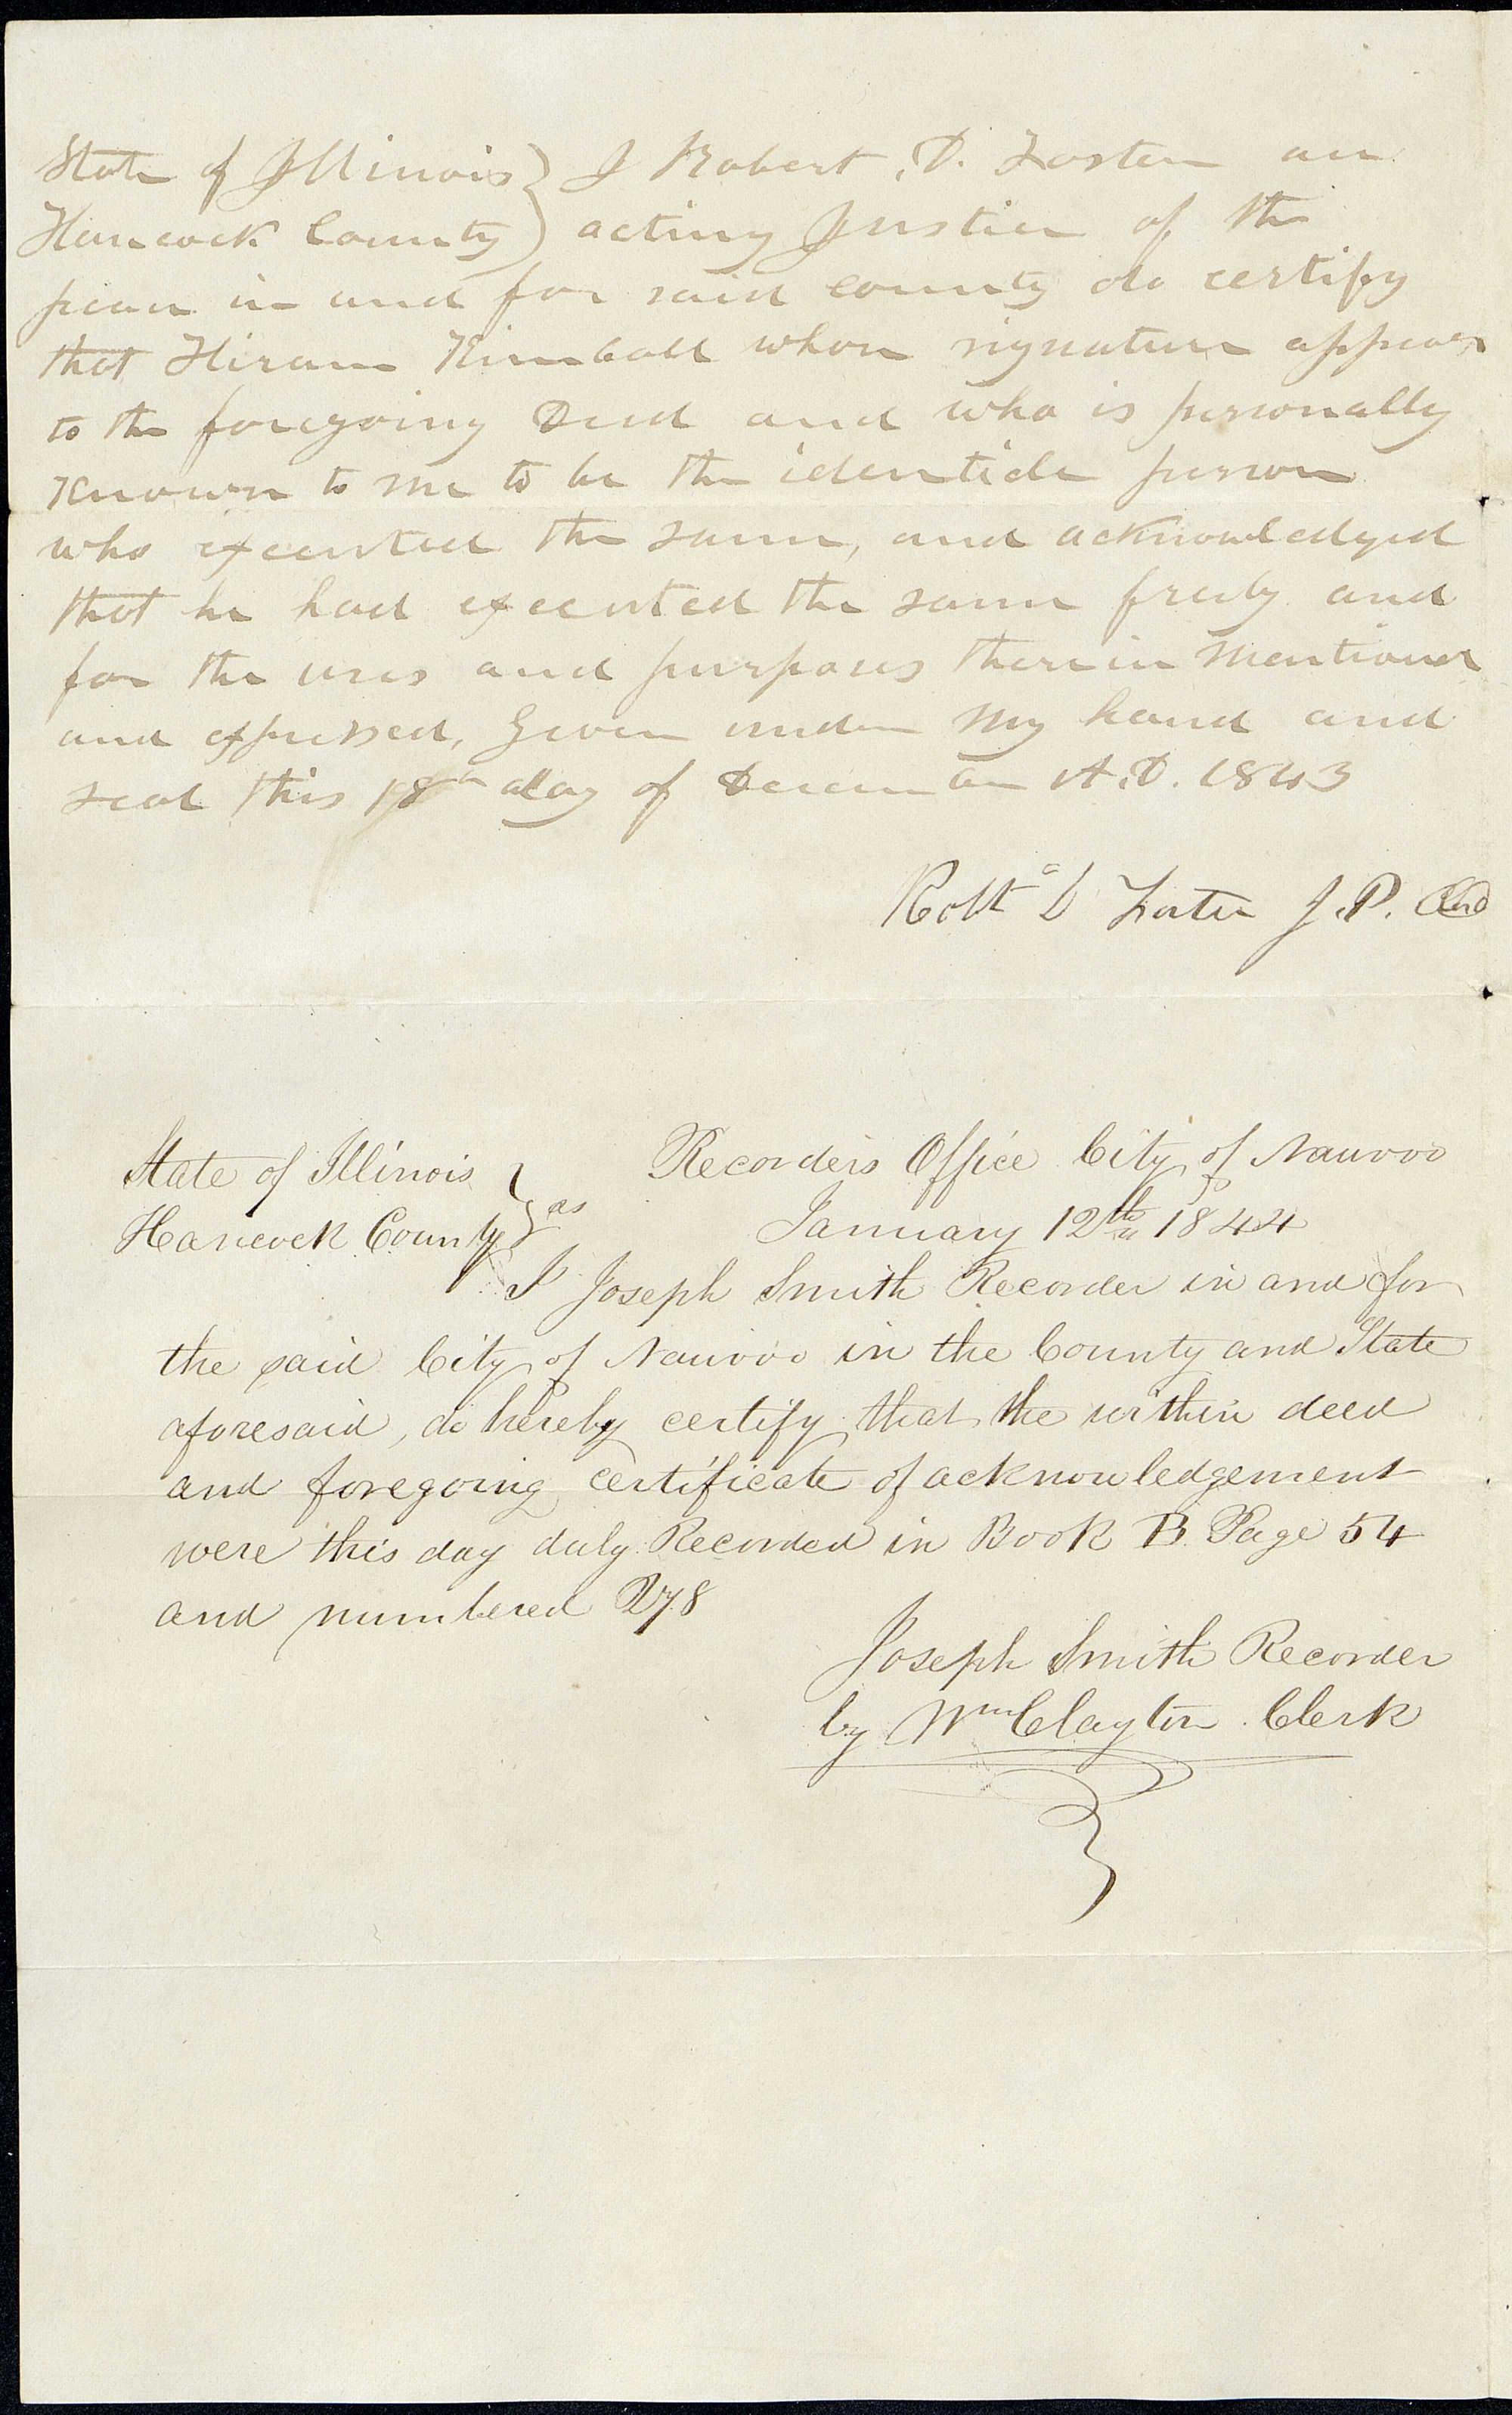 State of Illinois } I Robert. D. Foster an
Hancock County } acting Justice of the
peace in and for said county do certify
that Hiram Kimball whose signature appears
to the foregoing Deed and who is personally
Known to me to be the identicle person
who executed the same, and acknowledged
that he had executed the same freely and
for the uses and purposes therein mentioned
and expressed, Given under my hand and
seal this 18th day of December A.D. 1843
Robt D Foster J.P.
State of Illinois } ss Recorders Office City of Nauvoo
Hancock County } January 12th 1844
I Joseph Smith Recorder in and for
the said City of Nauvoo in the County and State
aforesaid, do hereby certify that the within deed
and foregoing certificate of acknowledgement
were this day duly Recorded in Book B. Page 54
and numbered 278
Joseph Smith Recorder
by Wm Clayton Clerk